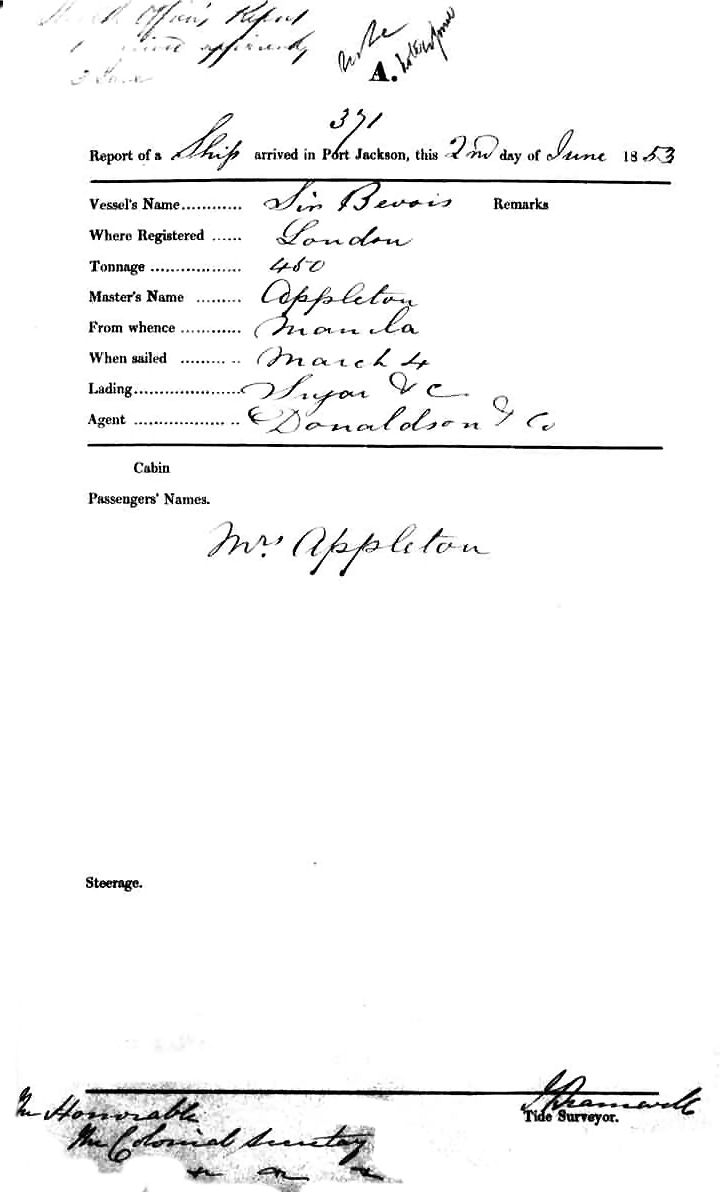 Officer's Report
A.
371
Report of a Ship arrived in Port Jackson, this 2nd day of June 1853
Vessel's Name............ Sir Bevois Remarks
Where Registered ...... London
Tonnage .................. 450
Master's Name ......... Appleton
From whence ............ Manila
When sailed ......... .. March 4
Lading..................... Sugar & c
Agent .................. .. Donaldson & Co
Cabin
Passengers' Names.
Mrs. Appleton
Steerage.
The Honorable
The Colonial Secretary
Tide Surveyor.